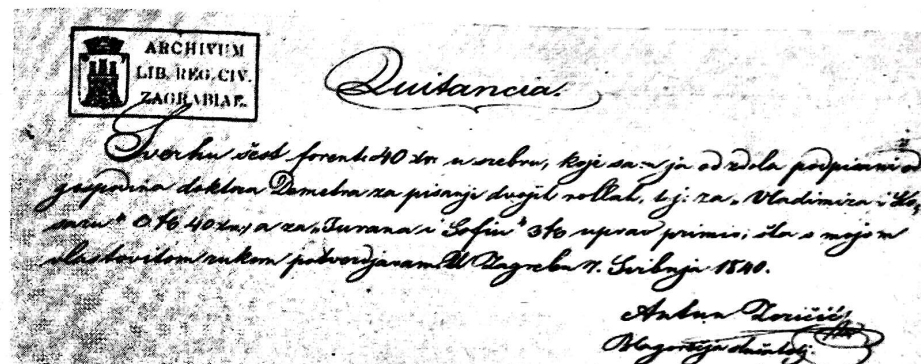 ARCHIVUM
LIB. REG. CIV.
ZAGRABIAE.
Quitancia.
Sverhu šest forenti 40 xr u srebru, koje sam ja od zdola podpisani od
gospodina doktora Demetra za pisanje dvojih rollah, t.j: za „Vladimira i
40 xr, a za „Jurana i Sofiu" uprav primio; šta s mojom
vlastovitom rukom potverdjavam. U Zagrebu 7. Svibnja 1840.
Antun